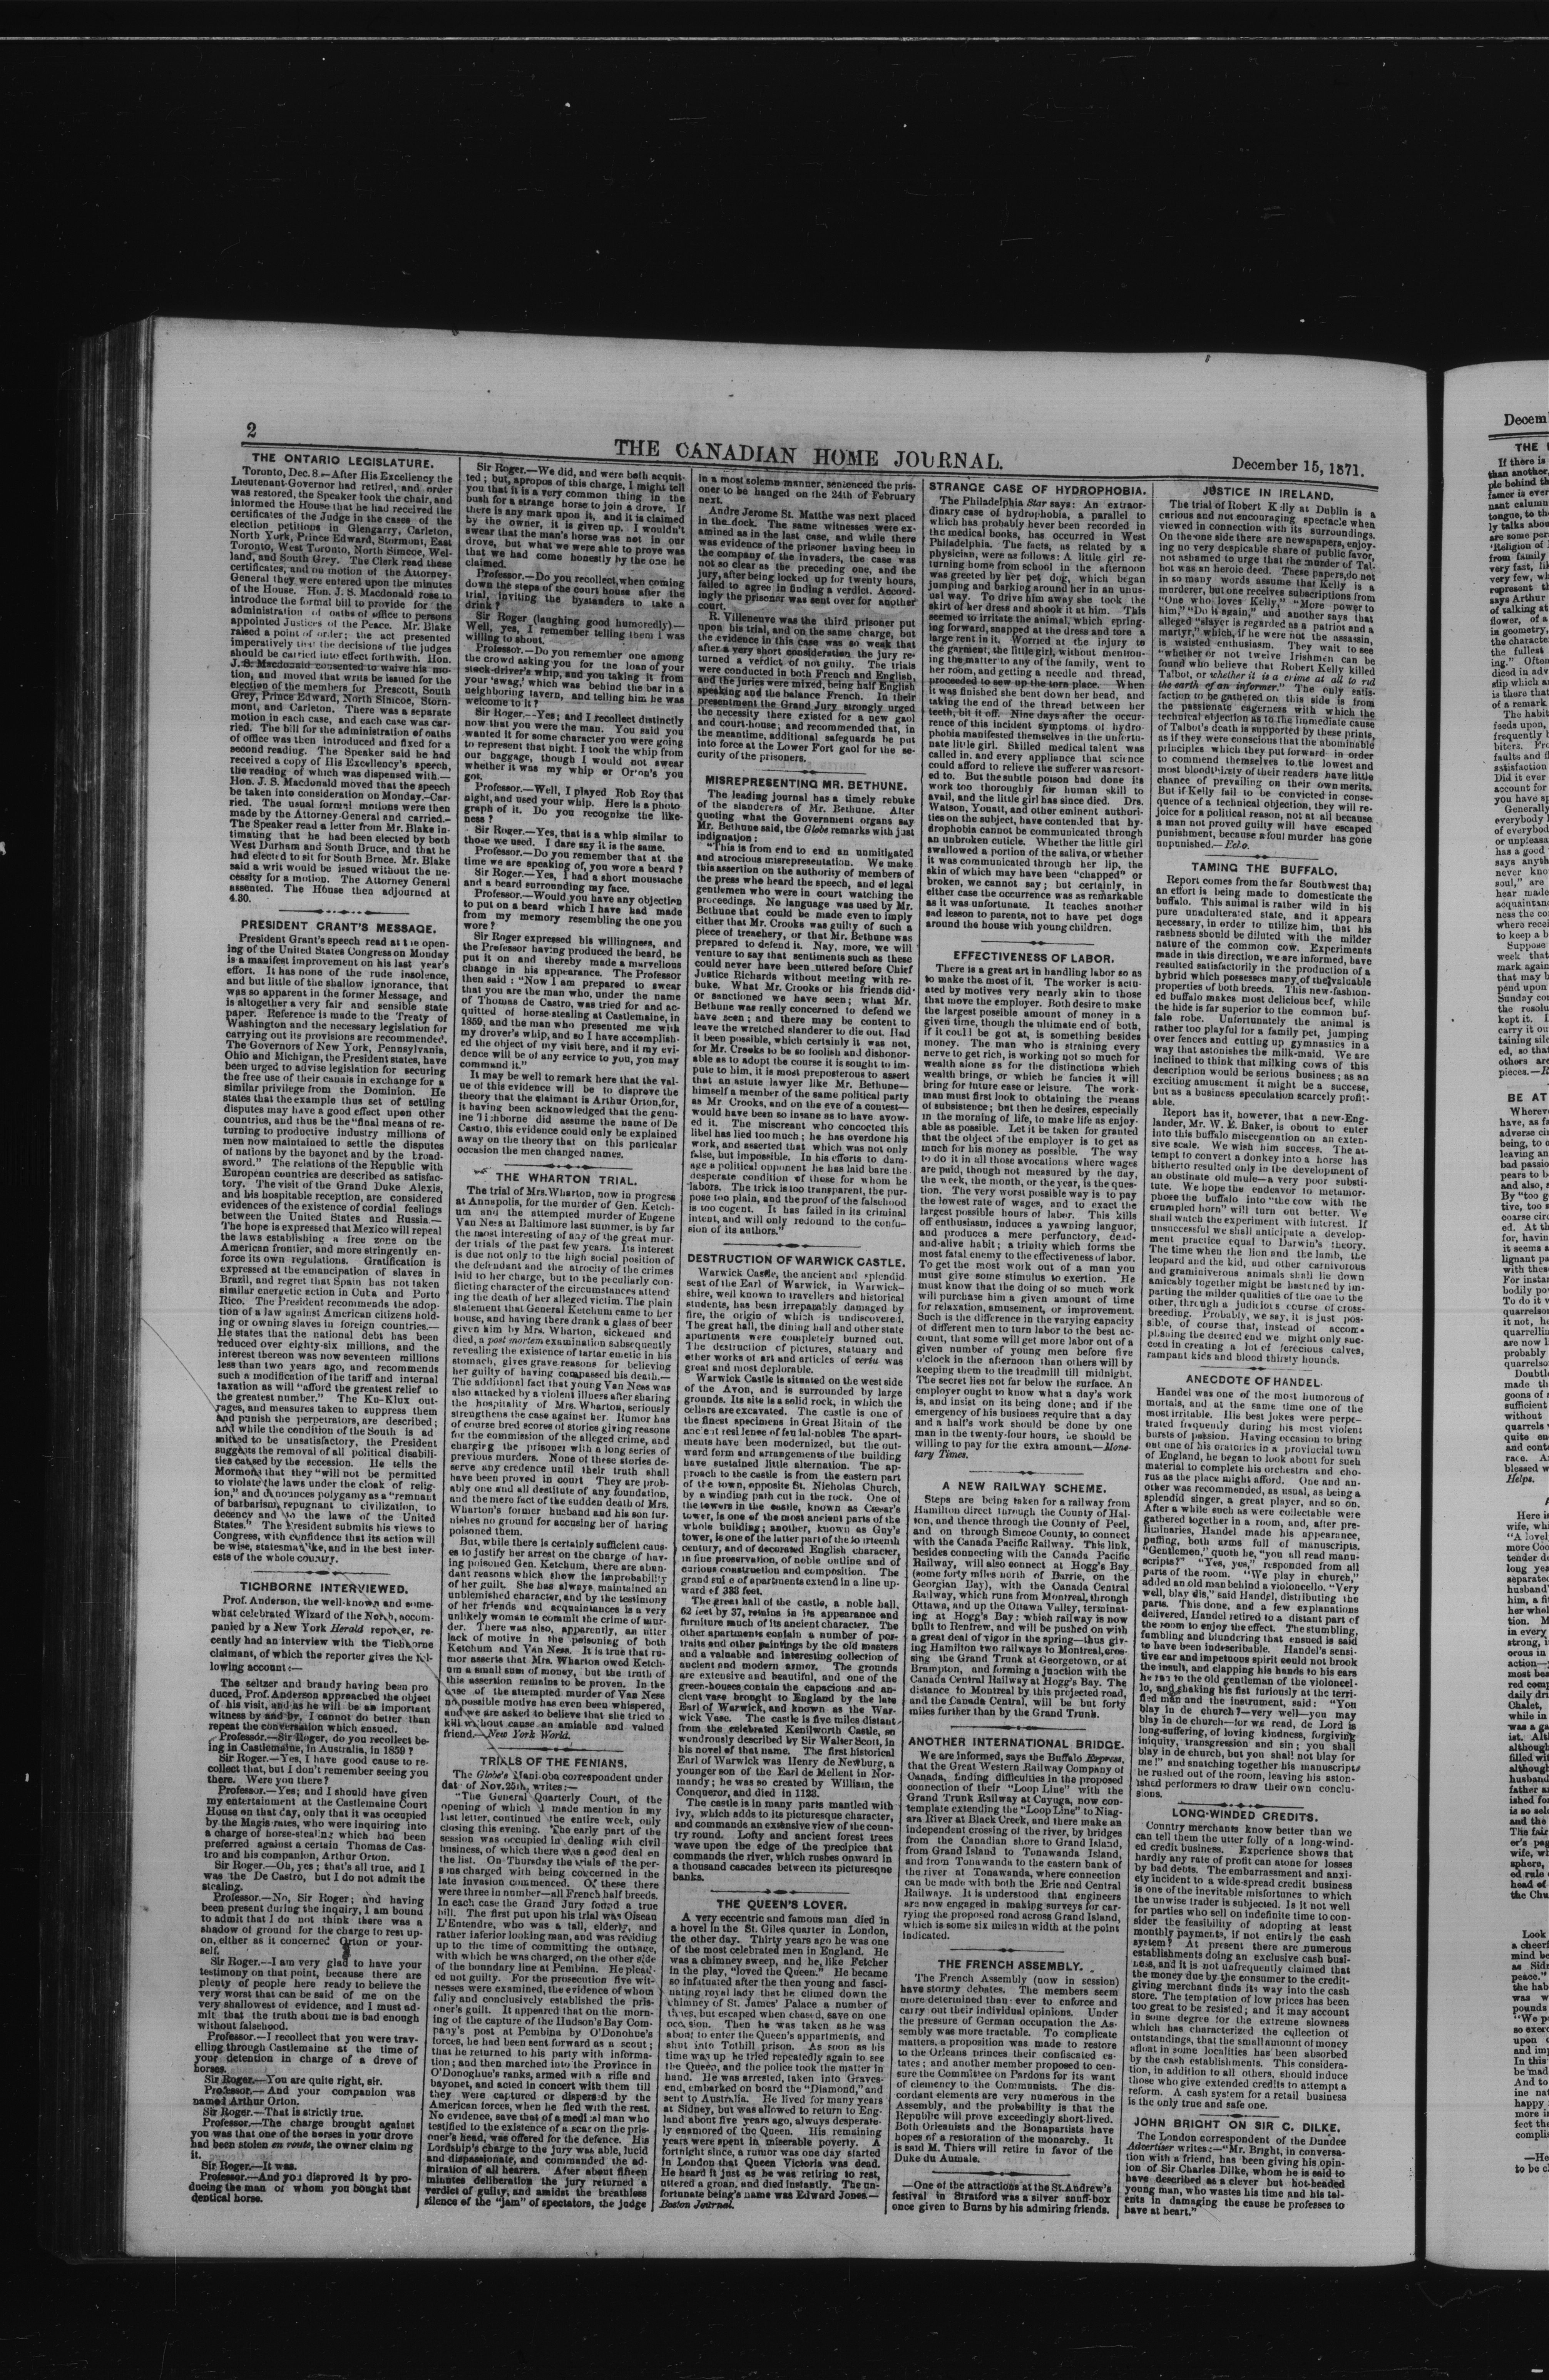 2
THE CANADIAN HOME JOURNAL.
December 15, 1871.
THE ONTARIO LEGISLATURE.
Toronto, Dec. 8.—After His Excellency the
Lieutenant-Governor had retired, and order
was restored, the Speaker took the chair, and
informed the House that he had received the
certificates of the Judge in the cases of the
election petitions in Glengarry, Carleton,
North York, Prince Edward, Stormont, East
Toronto, West Toronto, North Simcoe, Wel-
land, and South Grey. The Clerk read these
certificates, and on motion of the Attorney-
General they were entered upon the minutes
of the House. Hon. J. S. Macdonald rose to
introduce the formal bill to provide for the
administration of oaths of office to persons
appointed Justices of the Peace. Mr. Blake
raised a point of order; the act presented
imperatively that the decisions of the judges
should be carried into effect forthwith. Hon.
J. S. Macdonald consented to waive his mo-
tion, and moved that writs be issued for the
election of the members for Prescott, South
Grey, Prince Edward, North Simcoe, Stor-
mont, and Carleton. There was a separate
motion in each case, and each case was car-
ried. The bill for the administration of oaths
of office was then introduced and fixed for a
second reading. The Speaker said he had
received a copy of His Excellency's speech,
the reading of which was dispensed with.—
Hon. J. S. Macdonald moved that the speech
be taken into consideration on Monday.—Car-
ried. The usual formal motions were then
made by the Attorney-General and carried.—
The Speaker read a letter from Mr. Blake in-
timating that he had been elected by both
West Durham and South Bruce, and that he
had elected to sit for South Bruce. Mr. Blake
said a writ would be issued without the ne-
cessity for a motion. The Attorney General
assented. The House then adjourned at
4.30.
PRESIDENT GRANT'S MESSAGE.
President Grant's speech read at the open-
ing of the United States Congress on Monday
is a manifest improvement on his last year's
effort. It has none of the rude insolence,
and but little of the shallow ignorance, that
was so apparent in the former Message, and
is altogether a very fair and sensible state
paper. Reference is made to the Treaty of
Washington and the necessary legislation for
carrying out its provisions are recommended.
The Governors of New York, Pennsylvania,
Ohio and Michigan, the President states, have
been urged to advise legislation for securing
the free use of their canals in exchange for a
similar privilege from the Dominion. He
states that the example thus set of settling
disputes may have a good effect upon other
countries, and thus be the "final means of re-
turning to productive industry millions of
men now maintained to settle the disputes
of nations by the bayonet and by the broad-
sword." The relations of the Republic with
European countries are described as satisfac-
tory. The visit of the Grand Duke Alexis,
and his hospitable reception, are considered
evidences of the existence of cordial feelings
between the United States and Russia.—
The hope is expressed that Mexico will repeal
the laws establishing a free zone on the
American frontier, and more stringently en-
force its own regulations. Gratification is
expressed at the emancipation of slaves in
Brazil, and regret that Spain has not taken
similar energetic action in Cuba and Porto
Rico. The President recommends the adop-
tion of a law against American citizens hold-
ing or owning slaves in foreign countries.—
He states that the national debt has been
reduced over eighty-six millions, and the
interest thereon was now seventeen millions
less than two years ago, and recommends
such a modification of the tariff and internal
taxation as will "afford the greatest relief to
the greatest number." The Ku-Klux out-
rages, and measures taken to suppress them
and punish the perpetrators, are described;
and while the condition of the South is ad
mitted to be unsatisfactory, the President
suggests the removal of all political disabili-
ties caused by the secession. He tells the
Mormons that they "will not be permitted
to violate the laws under the cloak of relig-
ion," and denounces polygamy as a "remnant
of barbarism, repugnant to civilization, to
decency and to the laws of the United
States." The President submits his views to
Congress, with confidence that its action will
be wise, statesmanlike, and in the best inter-
ests of the whole country.
TICHBORNE INTERVIEWED.
Prof. Anderson, the well-known and some-
what celebrated Wizard of the North, accom-
panied by a New York Herald reporter, re-
cently had an interview with the Tichborne
claimant, of which the reporter gives the fol-
lowing account:—
The seltzer and brandy having been pro
duced, Prof. Anderson approached the object
of his visit, and as he will be an important
witness by and by, I cannot do better than
repeat the conversation which ensued.
Professor.—Sir Roger, do you recollect be-
ing in Castlemaine, in Australia, in 1859?
Sir Roger.—Yes, I have good cause to re-
collect that, but I don't remember seeing you
there. Were you there?
Professor.—Yes; and I should have given
my entertainment at the Castlemaine Court
House on that day, only that it was occupied
by the Magistrates, who were inquiring into
a charge of horse-stealing which had been
preferred against a certain Thomas de Cas-
tro and his companion, Arthur Orton.
Sir Roger.—Oh, yes; that's all true, and I
was the De Castro, but I do not admit the
stealing.
Professor.—No, Sir Roger; and having
been present during the inquiry, I am bound
to admit that I do not think there was a
shadow of ground for the charge to rest up-
on, either as it concerned Orton or your-
self.
Sir Roger.—I am very glad to have your
testimony on that point, because there are
plenty of people here ready to believe the
very worst that can be said of me on the
very shallowest of evidence, and I must ad-
mit that the truth about me is bad enough
without falsehood.
Professor.—I recollect that you were trav-
elling through Castlemaine at the time of
your detention in charge of a drove of
horses.
Sir Roger.—You are quite right, sir.
Professor.—And your companion was
named Arthur Orton.
Sir Roger.—That is strictly true.
Professor.—The charge brought against
you was that one of the horses in your drove
had been stolen en route, the owner claiming
it.
Sir Roger.—It was.
Professor.—And you disproved it by pro-
ducing the man of whom you bought that
dentical horse.
Sir Roger.—We did, and were both acquit-
ted; but, apropos of this charge, I might tell
you that it is a very common thing in the
bush for a strange horse to join a drove. If
there is any mark upon it, and it is claimed
by the owner, it is given up. I wouldn't
swear that the man's horse was not in our
drove, but what we were able to prove was
that we had come honestly by the one he
claimed.
Professor.—Do you recollect, when coming
down the steps of the court house after the
trial, inviting the bystanders to take a
drink?
Sir Roger (laughing good humoredly).—
Well, yes, I remember telling them I was
willing to shout.
Professor.—Do you remember one among
the crowd asking you for the loan of your
stock-driver's whip, and you taking it from
your 'swag,' which was behind the bar in a
neighboring tavern, and telling him he was
welcome to it?
Sir Roger.—Yes; and I recollect distinctly
now that you were the man. You said you
wanted it for some character you were going
to represent that night. I took the whip from
our baggage, though I would not swear
whether it was my whip or Orton's you
got.
Professor.—Well, I played Rob Roy that
night, and used your whip. Here is a photo-
graph of it. Do you recognize the like-
ness?
Sir Roger.—Yes, that is a whip similar to
those we used. I dare say it is the same.
Professor.—Do you remember that at the
time we are speaking of, you wore a beard?
Sir Roger.—Yes, I had a short moustache
and a beard surrounding my face.
Professor.—Would you have any objection
to put on a beard which I have had made
from my memory resembling the one you
wore?
Sir Roger expressed his willingness, and
the Professor having produced the beard, he
put it on and thereby made a marvellous
change in his appearance. The Professor
then said: "Now I am prepared to swear
that you are the man who, under the name
of Thomas de Castro, was tried for and ac-
quitted of horse-stealing at Castlemaine, in
1859, and the man who presented me with
my drover's whip, and so I have accomplish-
ed the object of my visit here, and if my evi-
dence will be of any service to you, you may
command it."
It may be well to remark here that the val-
ue of this evidence will be to disprove the
theory that the claimant is Arthur Orton, for,
it having been acknowledged that the genu-
ine Tichborne did assume the name of De
Castro, this evidence could only be explained
away on the theory that on this particular
occasion the men changed names.
THE WHARTON TRIAL.
The trial of Mrs. Wharton, now in progress
at Annapolis, for the murder of Gen. Ketch-
um and the attempted murder of Eugene
Van Ness at Baltimore last summer, is by far
the most interesting of any of the great mur-
der trials of the past few years. Its interest
is due not only to the high social position of
the defendant and the atrocity of the crimes
laid to her charge, but to the peculiarly con-
flicting character of the circumstances attend
ing the death of her alleged victim. The plain
statement that General Ketchum came to her
house, and having there drank a glass of beer
given him by Mrs. Wharton, sickened and
died, a post mortem examination subsequently
revealing the existence of tartar emetic in his
stomach, gives grave reasons for believing
her guilty of having compassed his death.—
The additional fact that young Van Ness was
also attacked by a violent illness after sharing
the hospitality of Mrs. Wharton, seriously
strengthens the case against her. Rumor has
of course bred scores of stories giving reasons
for the commission of the alleged crime, and
charging the prisoner with a long series of
previous murders. None of these stories de-
serve any credence until their truth shall
have been proved in court They are prob-
ably one and all destitute of any foundation,
and the mere fact of the sudden death of Mrs.
Wharton's former husband and his son fur-
nishes no ground for accusing her of having
poisoned them.
But, while there is certainly sufficient caus-
es to justify her arrest on the charge of hav-
ing poisoned Gen. Ketchum, there are abun-
dant reasons which show the improbability
of her guilt. She has always maintained an
unblemished character, and by the testimony
of her friends and acquaintances is a very
unlikely woman to commit the crime of mur-
der. There was also, apparently, an utter
lack of motive in the poisoning of both
Ketchum and Van Ness. It is true that ru-
mor asserts that Mrs. Wharton owed Ketch-
um a small sum of money, but the truth of
this assertion remains to be proven. In the
case of the attempted murder of Van Ness
no possible motive has even been whispered,
and we are asked to believe that she tried to
kill without cause an amiable and valued
friend.—New York World.
TRIALS OF THE FENIANS.
The Globe's Manitoba correspondent under
date of Nov. 25th, writes:—
"The General Quarterly Court, of the
opening of which I made mention in my
last letter, continued the entire week, only
closing this evening. The early part of the
session was occupied in dealing with civil
business, of which there was a good deal on
the list. On Thursday the trials of the per-
sons charged with being concerned in the
late invasion commenced. Of these there
were three in number—all French half breeds.
In each case the Grand Jury found a true
bill. The first put upon his trial was Oiseau
L'Entendre, who was a tall, elderly, and
rather inferior looking man, and was residing
up to the time of committing the outrage,
with which he was charged, on the other side
of the boundary line at Pembina. He plead-
ed not guilty. For the prosecution five wit-
nesses were examined, the evidence of whom
fully and conclusively established the pris-
oner's guilt. It appeared that on the morn-
ing of the capture of the Hudson's Bay Com-
pany's post at Pembina by O'Donohue's
forces, he had been sent forward as a scout;
that he returned to his party with informa-
tion; and then marched into the Province in
O'Donoghue's ranks, armed with a rifle and
bayonet, and acted in concert with them till
they were captured or dispersed by the
American forces, when he fled with the rest.
No evidence, save that of a medical man who
testified to the existence of a scar on the pris-
oner's head, was offered for the defence. His
Lordship's charge to the jury was able, lucid
and dispassionate, and commanded the ad-
miration of all hearers. After about fifteen
minutes deliberation the jury returned a
verdict of guilty, and amidst the breathless
silence of the "jam" of spectators, the judge
in a most solemn manner, sentenced the pris-
oner to be hanged on the 24th of February
next.
Andre Jerome St. Matthe was next placed
in the dock. The same witnesses were ex-
amined as in the last case, and while there
was evidence of the prisoner having been in
the company of the invaders, the case was
not so clear as the preceding one, and the
jury, after being locked up for twenty hours,
failed to agree in finding a verdict. Accord-
ingly the prisoner was sent over for another
court.
R. Villeneuve was the third prisoner put
upon his trial, and on the same charge, but
the evidence in this case was so weak that
after a very short consideration the jury re-
turned a verdict of not guilty. The trials
were conducted in both French and English,
and the juries were mixed, being half English
speaking and the balance French. In their
presentment the Grand Jury strongly urged
the necessity there existed for a new gaol
and court-house; and recommended that, in
the meantime, additional safeguards be put
into force at the Lower Fort gaol for the se-
curity of the prisoners.
MISREPRESENTING MR. BETHUNE.
The leading journal has a timely rebuke
of the slanderers of Mr. Bethune. After
quoting what the Government organs say
Mr. Bethune said, the Globe remarks with just
indignation:
"This is from end to end an unmitigated
and atrocious misrepresentation. We make
this assertion on the authority of members of
the press who heard the speech, and of legal
gentlemen who were in court watching the
proceedings. No language was used by Mr.
Bethune that could be made even to imply
either that Mr. Crooks was guilty of such a
piece of treachery, or that Mr. Bethune was
prepared to defend it. Nay, more, we will
venture to say that sentiments such as these
could never have been uttered before Chief
Justice Richards without meeting with re-
buke. What Mr. Crooks or his friends did
or sanctioned we have seen; what Mr.
Bethune was really concerned to defend we
have seen; and there may be content to
leave the wretched slanderer to die out. Had
it been possible, which certainly it was not,
for Mr. Crooks to be so foolish and dishonor-
able as to adopt the course it is sought to im-
pute to him, it is most preposterous to assert
that an astute lawyer like Mr. Bethune—
himself a member of the same political party
as Mr Crooks, and on the eve of a contest—
would have been so insane as to have avow-
ed it. The miscreant who concocted this
libel has lied too much; he has overdone his
work, and asserted that which was not only
false, but impossible. In his efforts to dam-
age a political opponent he has laid bare the
desperate condition of those for whom he
labors. The trick is too transparent, the pur-
pose too plain, and the proof of the falsehood
is too cogent. It has failed in its criminal
intent, and will only redound to the confu-
sion of its authors."
DESTRUCTION OF WARWICK CASTLE.
Warwick Castle, the ancient and splendid
seat of the Earl of Warwick, in Warwick-
shire, well known to travellers and historical
students, has been irreparably damaged by
fire, the origin of which is undiscovered.
The great hall, the dining hall and other state
apartments were completely burned out.
The destruction of pictures, statuary and
other works of art and articles of vertu was
great and most deplorable.
Warwick Castle is situated on the west side
of the Avon, and is surrounded by large
grounds. Its site is a solid rock, in which the
cellars are excavated. The castle is one of
the finest specimens in Great Britain of the
ancient residence of feudal-nobles The apart-
ments have been modernized, but the out-
ward form and arrangements of the building
have sustained little alternation. The ap-
proach to the castle is from the eastern part
of the town, opposite St. Nicholas Church,
by a winding path cut in the rock. One of
the towers in the castle, known as Cæsar's
tower, is one of the most ancient parts of the
whole building; another, known as Guy's
tower, is one of the latter part of the fourteenth
century, and of decorated English character,
in fine preservation, of noble outline and of
curious construction and composition. The
grand suite of apartments extend in a line up-
ward of 333 feet.
The great hall of the castle, a noble hall,
62 feet by 37, retains in its appearance and
furniture much of its ancient character. The
other apartments contain a number of por-
traits and other paintings by the old masters
and a valuable and interesting collection of
ancient and modern armor. The grounds
are extensive and beautiful, and one of the
green-houses contain the capacious and an-
cient vase brought to England by the late
Earl of Warwick, and known as the War-
wick Vase. The castle is five miles distant
from the celebrated Kenilworth Castle, so
wondrously described by Sir Walter Scott, in
his novel of that name. The first historical
Earl of Warwick was Henry de Newburg, a
younger son of the Earl de Mellent in Nor-
mandy; he was so created by William, the
Conqueror, and died in 1123.
The castle is in many parts mantled with
ivy, which adds to its picturesque character,
and commands an extensive view of the coun-
try round. Lofty and ancient forest trees
wave upon the edge of the precipice that
commands the river, which rushes onward in
a thousand cascades between its picturesque
banks.
THE QUEEN'S LOVER.
A very eccentric and famous man died in
a hovel in the St. Giles quarter in London,
the other day. Thirty years ago he was one
of the most celebrated men in England. He
was a chimney sweep, and he, like Fetcher
in the play, "loved the Queen." He became
so infatuated after the then young and fasci-
nating royal lady that he climed down the
chimney of St. James' Palace a number of
times, but escaped when chased, save on one
occasion. Then he was taken as he was
about to enter the Queen's appartments, and
shut into Tothill prison. As soon as his
time was up he tried repeatedly again to see
the Queen, and the police took the matter in
hand. He was arrested, taken into Graves-
end, embarked on board the "Diamond," and
sent to Australia. He lived for many years
at Sidney, but was allowed to return to Eng-
land about five years ago, always desperate-
ly enamored of the Queen. His remaining
years were spent in miserable poverty. A
fortnight since, a rumor was one day started
in London that Queen Victoria was dead.
He heard it just as he was retiring to rest,
uttered a groan, and died instantly. The un-
fortunate being's name was Edward Jones.—
Boston Journal.
STRANGE CASE OF HYDROPHOBIA.
The Philadelphia Star says: An extraor-
dinary case of hydrophobia, a parallel to
which has probably never been recorded in
the medical books, has occurred in West
Philadelphia. The facts, as related by a
physician, were as follows: A little girl re-
turning home from school in the afternoon
was greeted by her pet dog, which began
jumping and barking around her in an unus-
ual way. To drive him away she took the
skirt of her dress and shook it at him. This
seemed to irritate the animal, which spring-
ing forward, snapped at the dress and tore a
large rent in it. Worried at the injury to
the garment, the little girl, without mention-
ing the matter to any of the family, went to
her room, and getting a needle and thread,
proceeded to sew up the torn place. When
it was finished she bent down her head, and
taking the end of the thread between her
teeth, bit it off. Nine days after the occur-
rence of this incident symptoms of hydro-
phobia manifested themselves in the unfortu-
nate little girl. Skilled medical talent was
called in, and every appliance that science
could afford to relieve the sufferer was resort-
ed to. But the subtle poison had done its
work too thoroughly for human skill to
avail, and the little girl has since died. Drs.
Watson, Youatt, and other eminent authori-
ties on the subject, have contended that hy-
drophobia cannot be communicated through
an unbroken cuticle. Whether the little girl
swallowed a portion of the saliva, or whether
it was communicated through her lip, the
skin of which may have been "chapped" or
broken, we cannot say; but certainly, in
either case the occurrence was as remarkable
as it was unfortunate. It teaches another
sad lesson to parents, not to have pet dogs
around the house with young children.
EFFECTIVENESS OF LABOR.
There is a great art in handling labor so as
to make the most of it. The worker is actu-
ated by motives very nearly akin to those
that move the employer. Both desire to make
the largest possible amount of money in a
given time, though the ultimate end of both,
if it could be got at, is something besides
money. The man who is straining every
nerve to get rich, is working not so much for
wealth alone as for the distinctions which
wealth brings, or which he fancies it will
bring for future ease or leisure. The work-
man must first look to obtaining the means
of subsistence; but then he desires, especially
in the morning of life, to make life as enjoy-
able as possible. Let it be taken for granted
that the object of the employer is to get as
much for his money as possible. The way
to do it in all those avocations where wages
are paid, though not measured by the day,
the week, the month, or the year, is the ques-
tion. The very worst possible way is to pay
the lowest rate of wages, and to exact the
largest possible hours of labor. This kills
off enthusiasm, induces a yawning languor,
and produces a mere perfunctory, dead-
and-alive habit; a trinity which forms the
most fatal enemy to the effectiveness of labor.
To get the most work out of a man you
must give some stimulus to exertion. He
must know that the doing of so much work
will purchase him a given amount of time
for relaxation, amusement, or improvement.
Such is the difference in the varying capacity
of different men to turn labor to the best ac-
count, that some will get more labor out of a
given number of young men before five
o'clock in the afternoon than others will by
keeping them to the treadmill till midnight.
The secret lies not far below the surface. An
employer ought to know what a day's work
is, and insist on its being done; and if the
emergency of his business require that a day
and a half's work should be done by one
man in the twenty-four hours, he should be
willing to pay for the extra amount.—Mone-
tary Times.
A NEW RAILWAY SCHEME.
Steps are being taken for a railway from
Hamilton direct through the County of Hal-
ton, and thence through the County of Peel,
and on through Simcoe County, to connect
with the Canada Pacific Railway. This link,
besides connecting with the Canada Pacific
Railway, will also connect at Hogg's Bay
(some forty miles north of Barrie, on the
Georgian Bay), with the Canada Central
Railway, which runs from Montreal, through
Ottawa, and up the Ottawa Valley, terminat-
ing at Hogg's Bay: which railway is now
built to Renfrew, and will be pushed on with
a great deal of vigor in the spring—thus giv-
ing Hamilton two railways to Montreal, cros-
sing the Grand Trunk at Georgetown, or at
Brampton, and forming a junction with the
Canada Central Railway at Hogg's Bay. The
distance to Montreal by this projected road,
and the Canada Central, will be but forty
miles further than by the Grand Trunk.
ANOTHER INTERNATIONAL BRIDGE.
We are informed, says the Buffalo Express,
that the Great Western Railway Company of
Canada, finding difficulties in the proposed
connection of their "Loop Line" with the
Grand Trunk Railway at Cayuga, now con-
template extending the "Loop Line" to Niag-
ara River at Black Creek, and there make an
independent crossing of the river, by bridges
from the Canadian shore to Grand Island,
from Grand Island to Tonawanda Island,
and from Tonawanda to the eastern bank of
the river at Tonawanda, where connection
can be made with both the Erie and Central
Railways. It is understood that engineers
are now engaged in making surveys for car-
rying the proposed road across Grand Island,
which is some six miles in width at the point
indicated.
THE FRENCH ASSEMBLY.
The French Assembly (now in session)
have stormy debates. The members seem
more determined than ever to enforce and
carry out their individual opinions. Under
the pressure of German occupation the As-
sembly was more tractable. To complicate
matters, a proposition was made to restore
to the Orleans princes their confiscated es-
tates; and another member proposed to cen-
sure the Committee on Pardons for its want
of clemency to the Communists. The dis-
cordant elements are very numerous in the
Assembly, and the probability is that the
Republic will prove exceedingly short-lived.
Both Orleanists and the Bonapartists have
hopes of a restoration of the monarchy. It
is said M. Thiers will retire in favor of the
Duke du Aumale.
—One of the attractions at the St. Andrew's
festival in Stratford was a silver snuff-box
once given to Burns by his admiring friends.
JUSTICE IN IRELAND.
The trial of Robert Kelly at Dublin is a
carious and not encouraging spectacle when
viewed in connection with its surroundings.
On the one side there are newspapers, enjoy-
ing no very despicable share of public favor,
not ashamed to urge that the murder of Tal-
bot was an heroic deed. These papers do not
in so many words assume that Kelly is a
murderer, but one receives subscriptions from
"One who loves Kelly," "More power to
him," "Do it again," and another says that
alleged "slayer is regarded as a patriot and a
martyr," which, if he were not the assassin,
is waisted enthusiasm. They wait to see
"whether or not twelve Irishmen can be
found who believe that Robert Kelly killed
Talbot, or whether it is a crime at all to rid
the earth of an informer." The only satis-
faction to be gathered on this side is from
the passionate eagerness with which the
technical objection as to the immediate cause
of Talbot's death is supported by these prints,
as if they were conscious that the abominable
principles which they put forward in order
to commend themselves to the lowest and
most bloodthirsty of their readers have little
chance of prevailing on their own merits.
But if Kelly fail to be convicted in conse-
quence of a technical objection, they will re-
joice for a political reason, not at all because
a man not proved guilty will have escaped
punishment, because a foul murder has gone
unpunished.—Echo.
TAMING THE BUFFALO.
Report comes from the far Southwest that
an effort is being made to domesticate the
buffalo. This animal is rather wild in his
pure unadulterated state, and it appears
necessary, in order to utilize him, that his
rashness should be diluted with the milder
nature of the common cow. Experiments
made in this direction, we are informed, have
resulted satisfactorily in the production of a
hybrid which possesses many of the valuable
properties of both breeds. This new-fashion-
ed buffalo makes most delicious beef, while
the hide is far superior to the common buf-
falo robe. Unfortunately the animal is
rather too playful for a family pet, jumping
over fences and cutting up gymnastics in a
way that astonishes the milk-maid. We are
inclined to think that milking cows of this
description would be serious business; as an
exciting amusement it might be a success,
but as a business speculation scarcely profit-
able.
Report has it, however, that a new-Eng-
lander, Mr. W. E. Baker, is obout to enter
into this buffalo miscegenation on an exten-
sive scale. We wish him success. The at-
tempt to convert a donkey into a horse has
hitherto resulted only in the development of
an obstinate old mule—a very poor substi-
tute. We hope the endeavor to metamor-
phose the buffalo into "the cow with the
crumpled horn" will turn out better. We
shall watch the experiment with interest. If
unsuccessful we shall anticipate a develop-
ment practice equal to Darwin's theory.
The time when the lion and the lamb, the
leopard and the kid, and other carnivorous
and graminiverous animals shall lie down
amicably together might be hastened by im-
parting the milder qualities of the one to the
other, through a judicious course of cross-
breeding. Probably, we say, it is just pos-
sible, of course that, instead of accom-
plishing the desired end we might only suc-
ceed in creating a lot of ferocious calves,
rampant kids and blood thirsty hounds.
ANECDOTE OF HANDEL.
Handel was one of the most humorous of
mortals, and at the same time one of the
most irritable. His best jokes were perpe-
trated frequently during his most violent
bursts of passion. Having occasion to bring
out one of his oratorios in a provincial town
of England, he began to look about for such
material to complete his orchestra and cho-
rus as the place might afford. One and an-
other was recommended, as usual, as being a
splendid singer, a great player, and so on.
After a while such as were collectable were
gathered together in a room, and, after pre-
liminaries, Handel made his appearance,
puffing, both arms full of manuscripts.
"Gentlemen," quoth he, "you all read manu-
scripts?" "Yes, yes," responded from all
parts of the room. "We play in church,"
added an old man behind a violoncello. "Very
well, blay dis," said Handel, distributing the
parts. This done, and a few explanations
delivered, Handel retired to a distant part of
the room to enjoy the effect. The stumbling,
fumbling and blundering that ensued is said
to have been indescribable. Handel's sensi-
tive ear and impetuous spirit could not brook
the insult, and clapping his hands to his ears
he ran to the old gentleman of the violoncel-
lo, and shaking his fist furiously at the terri-
fied man and the instrument, said: "You
blay in de church?—very well—you may
blay in de church—for we read, de Lord is
long-suffering, of loving kindness, forgiving
iniquity, transgression and sin; you shall
blay in de church, but you shall not blay for
me!" and snatching together his manuscripts
he rushed out of the room, leaving his aston-
ished performers to draw their own conclu-
sions.
LONG-WINDED CREDITS.
Country merchants know better than we
can tell them the utter folly of a long-wind-
ed credit business. Experience shows that
hardly any rate of profit can atone for losses
by bad debts. The embarrassment and anxi-
ety incident to a wide-spread credit business
is one of the inevitable misfortunes to which
the unwise trader is subjected. Is it not well
for parties who sell on indefinite time to con-
sider the feasibility of adopting at least
monthly payments, if not entirely the cash
system? At present there are numerous
establishments doing an exclusive cash busi-
ness, and it is not unfrequently claimed that
the money due by the consumer to the credit-
giving merchant finds its way into the cash
store. The temptation of low prices has been
too great to be resisted; and it may account
in some degree for the extreme slowness
which has characterized the collection of
outstandings, that the small amount of money
afloat in some localities has been absorbed
by the cash establishments. This considera-
tion, in addition to all others, should induce
those who give extended credits to attempt a
reform. A cash system for a retail business
is the only true and safe one.
JOHN BRIGHT ON SIR C. DILKE.
The London correspondent of the Dundee
Advertiser writes:—"Mr. Bright, in conversa-
tion with a friend, has been giving his opin-
ion of Sir Charles Dilke, whom he is said to
have described as a clever but hot-headed
young man, who wastes his time and his tal-
ents in damaging the cause he professes to
have at heart."